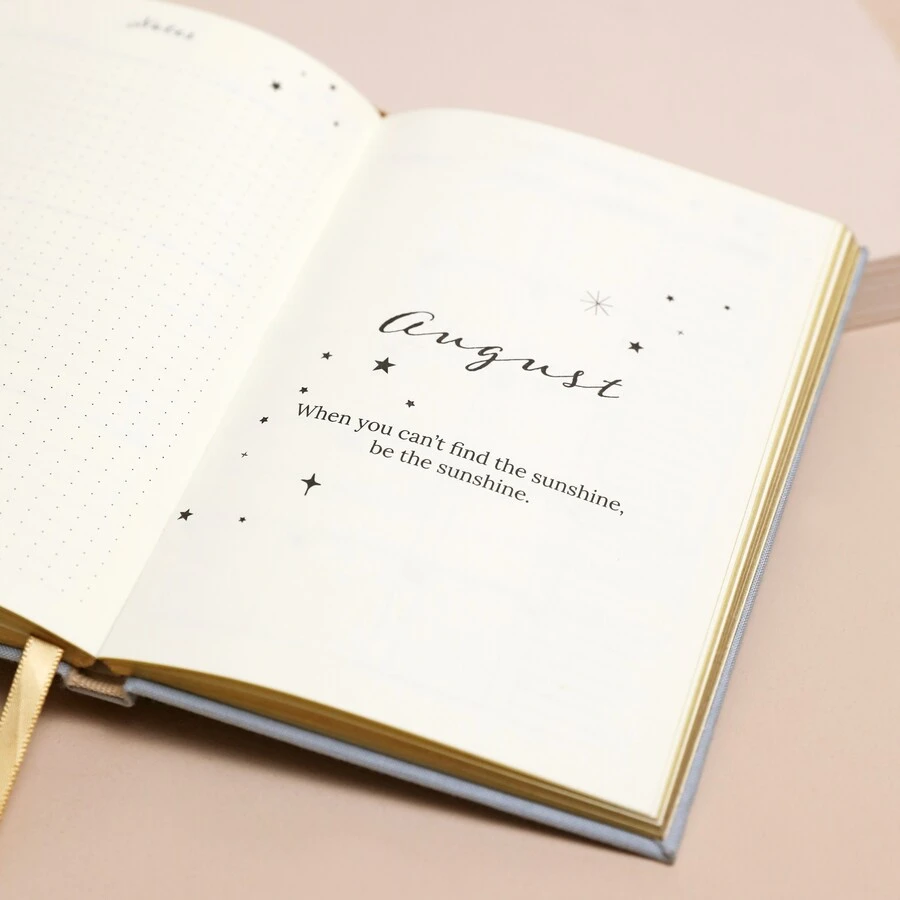 Notes
August
When you can't find the sunshine,
be the sunshine.